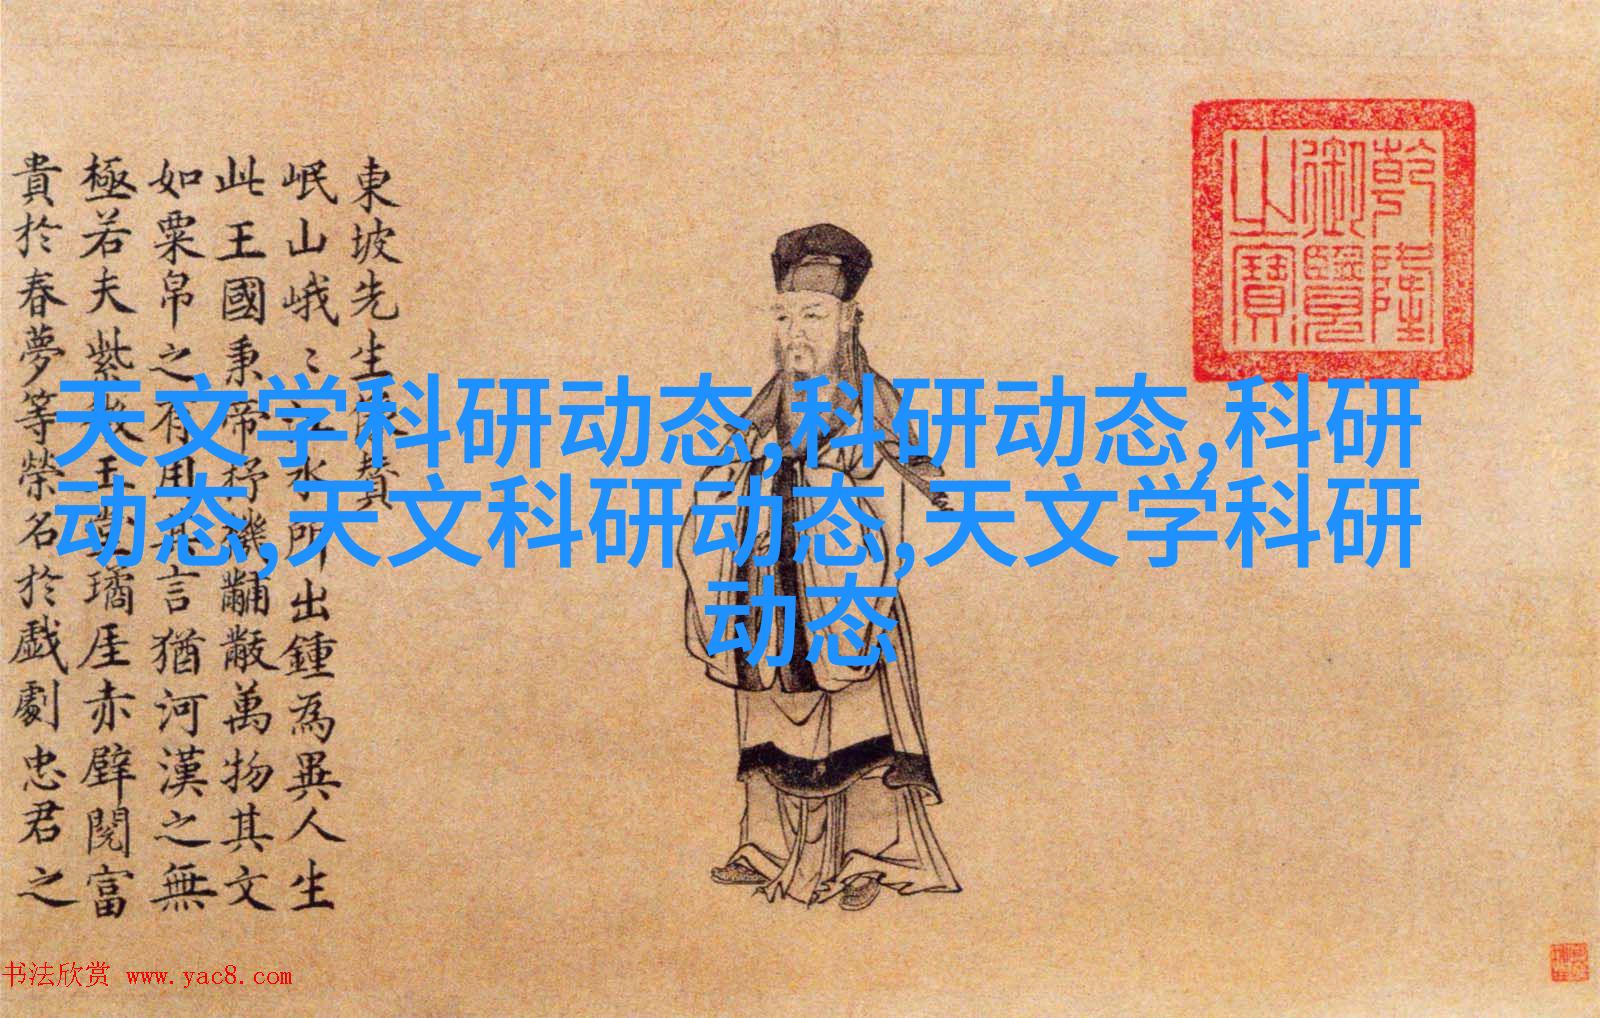 東坡先生像贊
岷山峨〻江水所出鍾為異人生
此王國秉帝杼機黼黻萬物其文
如粟帛之有用其言猶河漢之無
極若夫紫微玉堂瓊厓赤壁閱富
貴於春夢等榮名於戲劇忠君之
乾隆
御覽
之寶
天文学科研动态,科研动态,科研
动态,天文科研动态,天文学科研
动态
书法欣赏 www.yac8.com